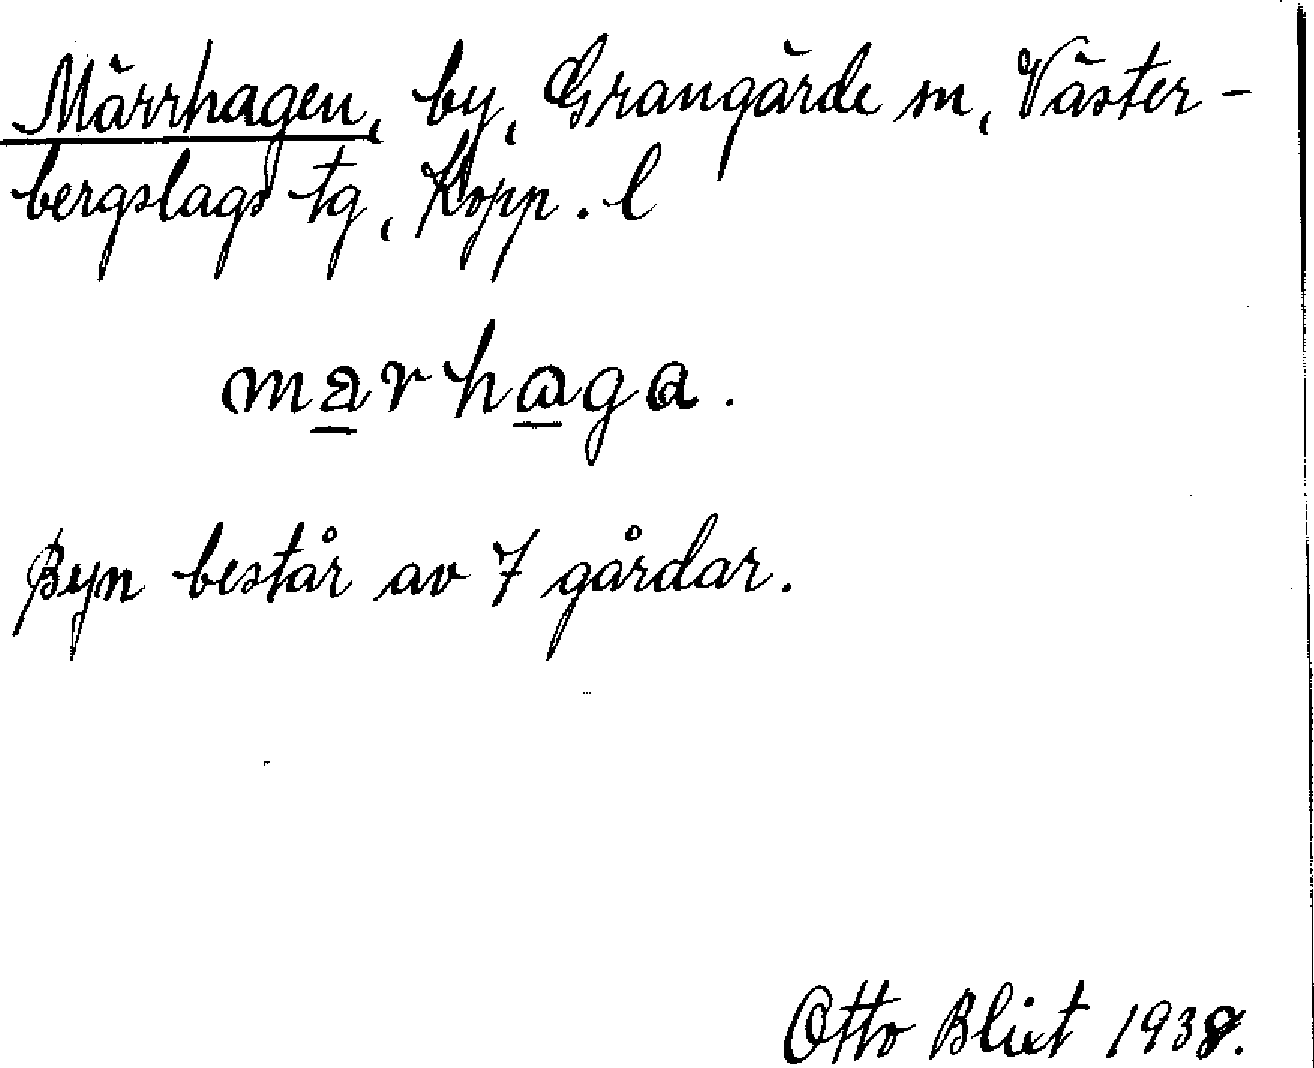 Märrhagen, by, Grangärde sn, Väster-
bergslags tg, Kopp. l
marhaga.
Byn består av 7 gårdar.
Otto Blixt 1938.